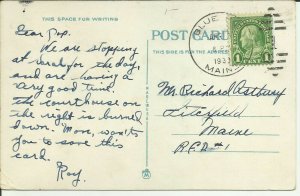 THIS SPACE FOR WRITING
POST CARD
THIS SIDE IS FOR THE ADDRESS
BLUE
MAINE
1 CENT 1
Dear Pop.
We are stopping
at for the day,
and are having a
very good time.
the courthouse on
the right is burned
down. Mom, wants
you to save this
card.
Roy.
Mr. Richard Astbury
Litchfield
Maine
R.F.D #1